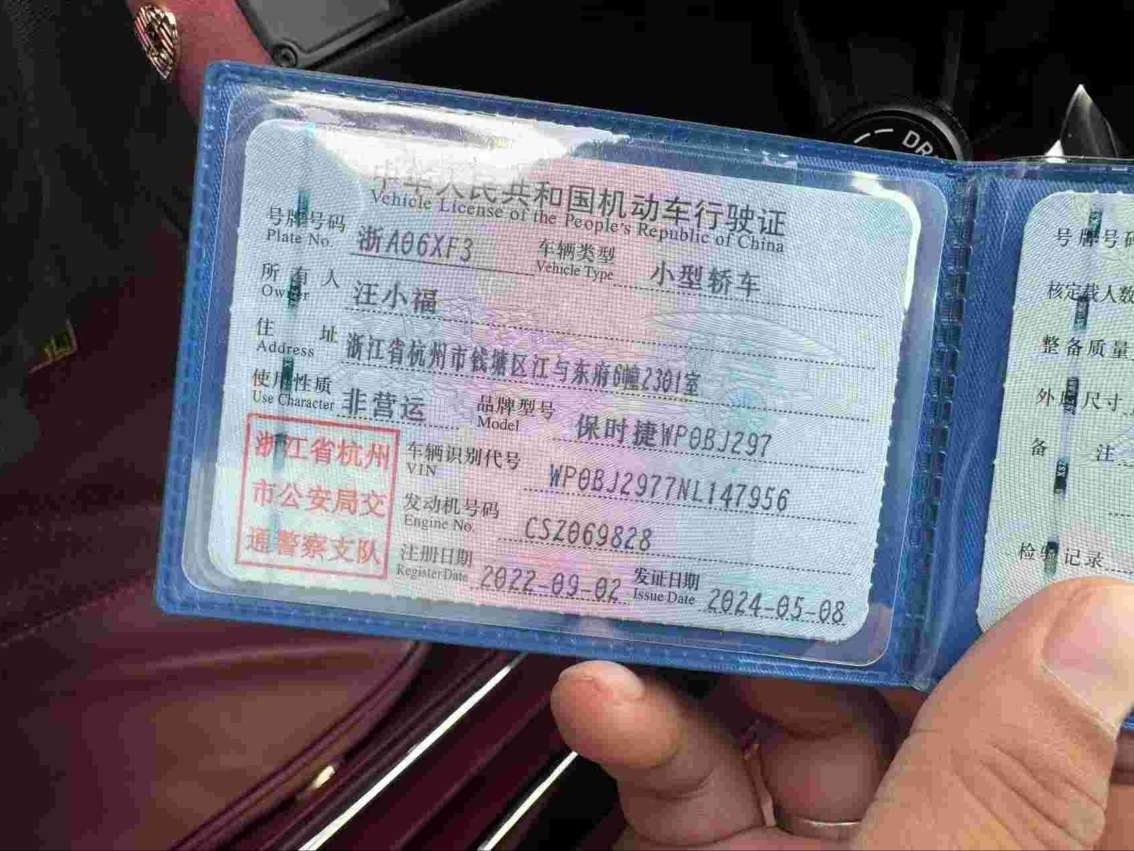 DR
中华人民共和国机动车行驶证
Vehicle License of the People's Republic of China
号牌号码 浙A06XF3 车辆类型 小型轿车
Plate No. Vehicle Type
所有人 汪小福
Owner
住址 浙江省杭州市钱塘区江与东府6幢2301室
Address
使用性质 非营运 品牌型号 保时捷WP0BJ297
Use Character Model
浙江省杭州
市公安局交
通警察支队
车辆识别代号 WP0BJ2977NL147956
VIN
发动机号码 CSZ069828
Engine No.
注册日期 2022-09-02 发证日期 2024-05-08
Register Date Issue Date
号牌号码
核定载人数
整备质量
外廓尺寸
备注
检验记录